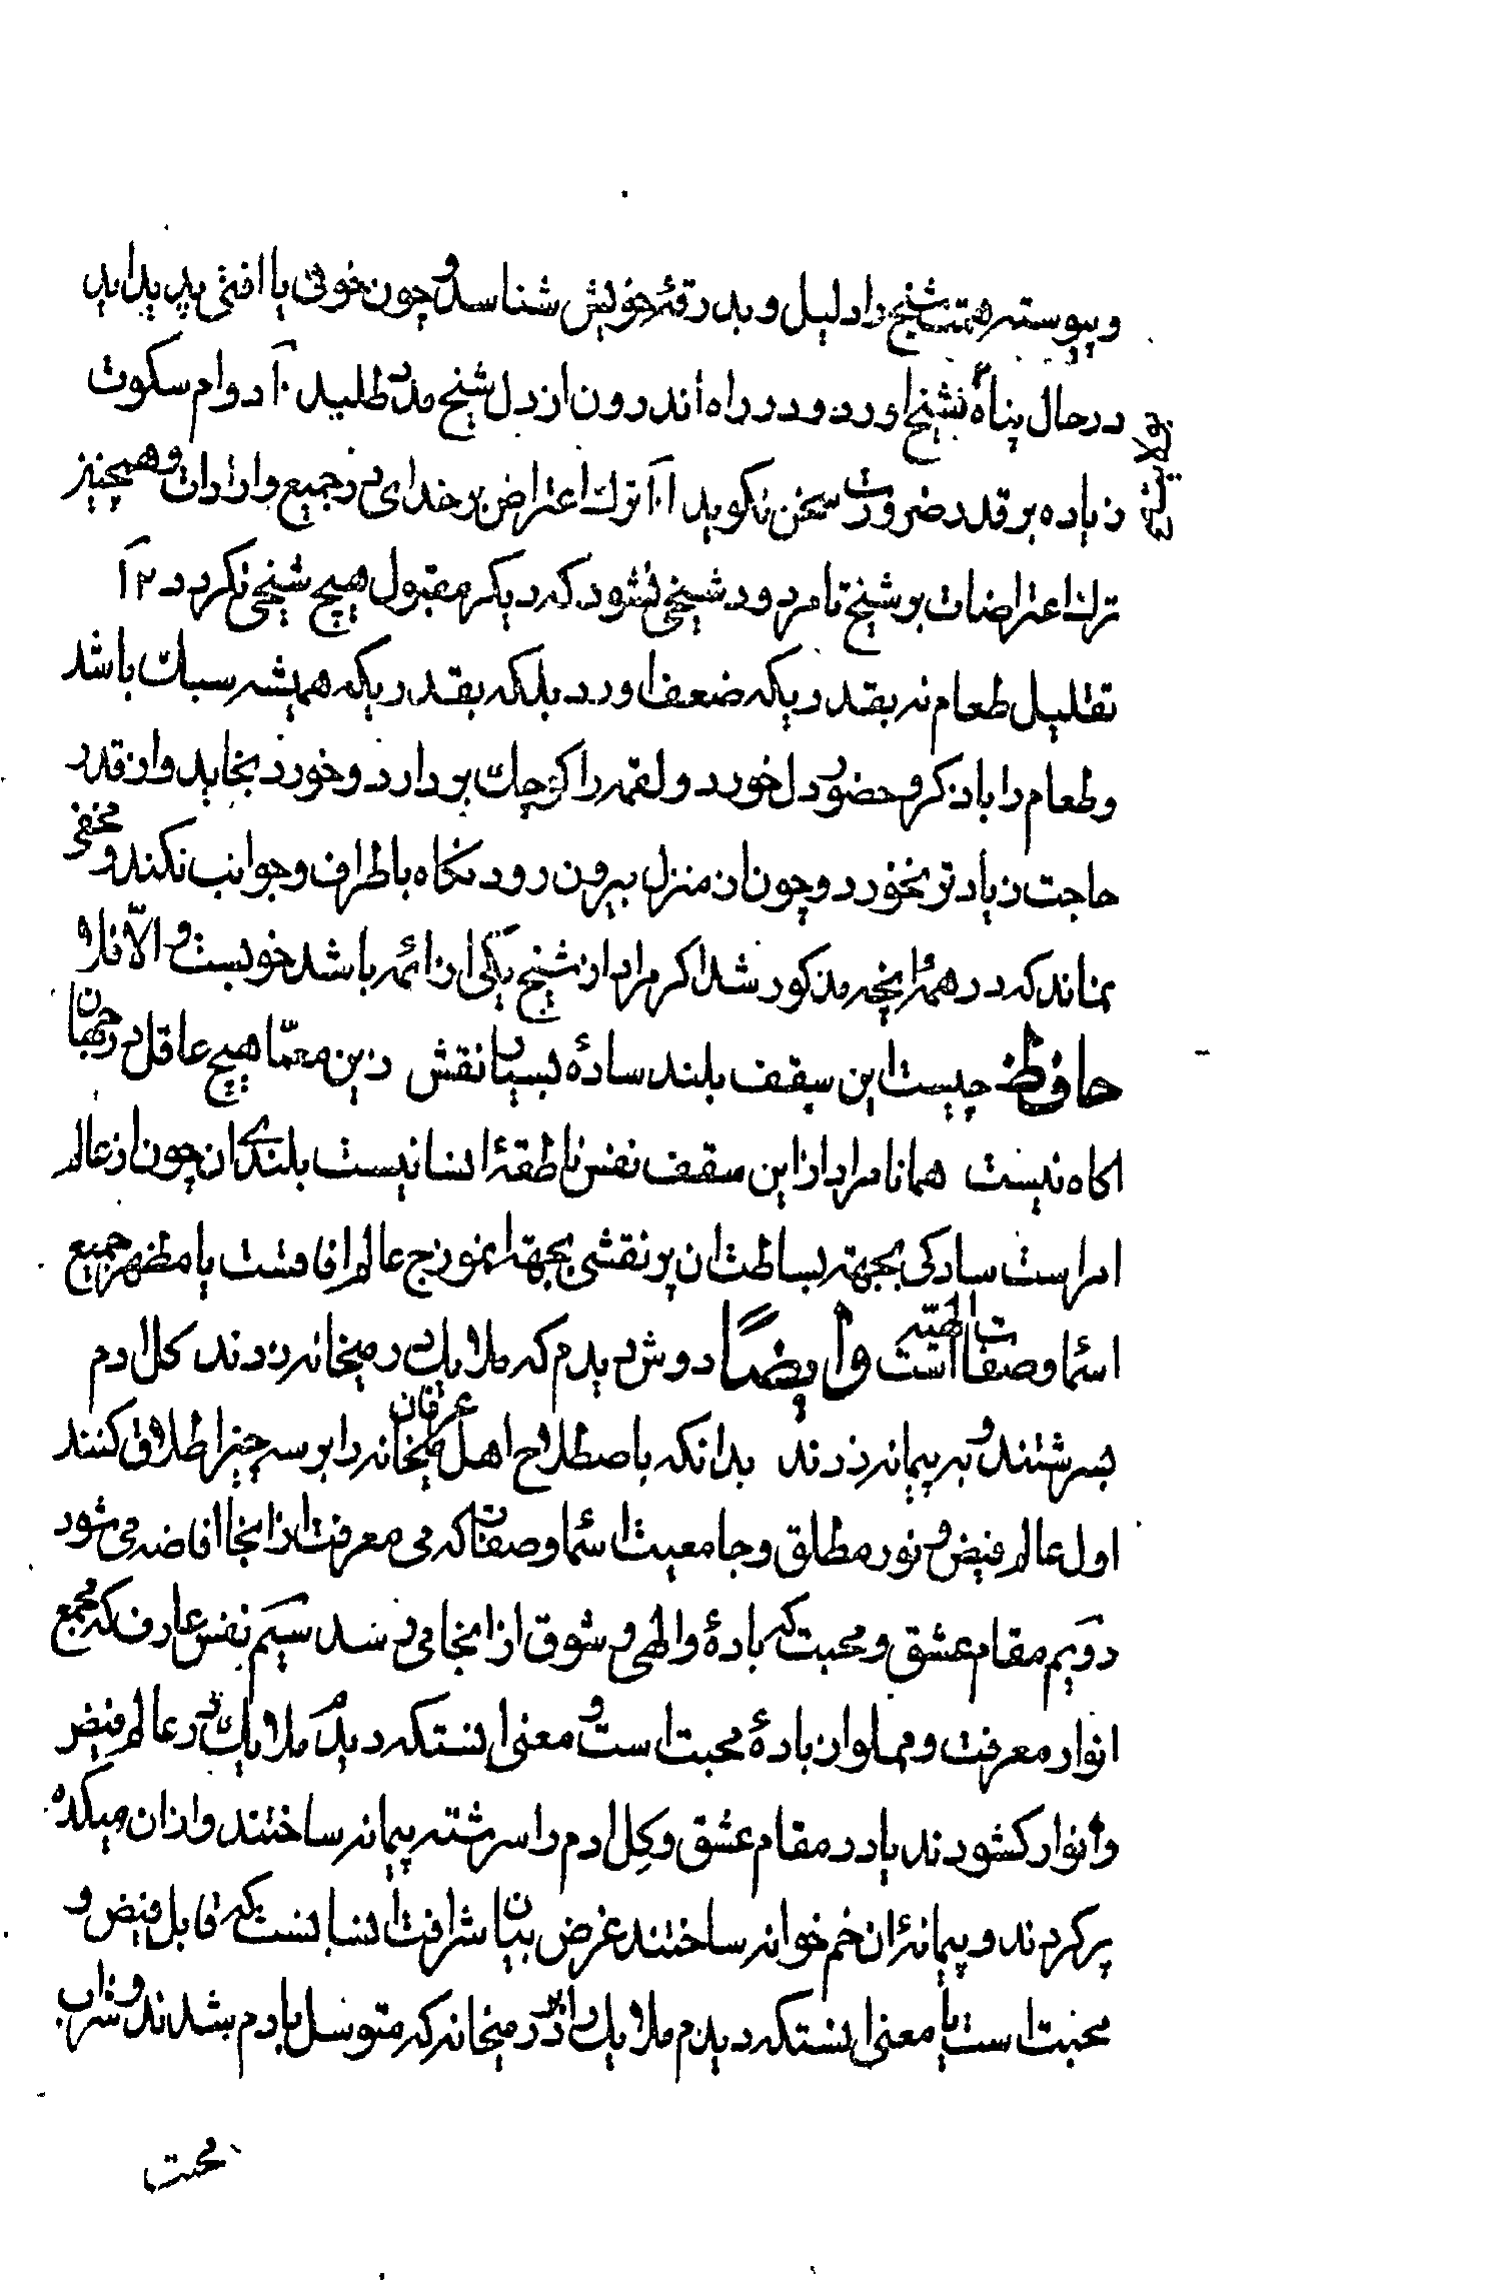 و پیوسته همت شیخ را دلیل و بدرقهٔ خویش شناسد و چون خوفی یا افتی پدید اید
در حال پناه بشیخ اورد و در راه اندرون از دل شیخ مدد طلبد ۱۰ دوام سکوت
زیاده بر قدر ضرورت سخن نکوید ۱۱ ترك اعتراض بر خدای در جمیع واردات و همچنیز
ترك اعتراضات بر شیخ تا مردود شیخی نشود که دیکر مقبول هیچ شیخی نکردد ۱۲
تقلیل طعام نه بقدریکه ضعف اورد بلکه بقدریکه همیشه سبك باشد
و طعام را با ذکر و حضور دل خورد و لقمه را کوچك بردارد و خورد بخاید و از قدر
حاجت زیادتر نخورد و چون از منزل بیرون رود نکاه باطراف و جوانب نکند و مخفی
نماند که در همهٔ انچه مذکور شد اکر مراد از شیخ یکی از ائمه باشد خوبست و الّا فلا
حافظ چیست این سقف بلند سادهٔ بسیار نقش زین معمّا هیچ عاقل در جهان
اکاه نیست همانا مراد از این سقف نفس ناطقهٔ انسانیست بلندی ان چون از عالم
امر است سادکی بجهته بساطت ان پر نقشی بجهة انموزج عالم افاقست یا مظهر جمیع
اسما و صفات الهیّه است وایضًا دوش دیدم که ملایك در میخانه زدند کل ادم
بسرشتند و به پیمانه زدند بدانکه باصطلاح اهل عرفان میخانه را بر سه چیز اطلاق کنند
اول عالم فیض و نور مطلق و جامعیت اسما و صفات که می معرفت از انجا افاضه می شود
دویم مقام عشق و محبت که بادهٔ والهی و شوق از انجا می رسد سیم نفس عارف که مجمع
انوار معرفت و مملو از بادهٔ محبت است و معنی انستکه دیدم ملایك در عالم فیض
و انوار کشودند یا در مقام عشق و کل ادم را سرشته پیمانه ساختند و از ان میکده
پر کردند و پیمانهٔ ان خم خوانه ساختند غرض بیان شرافت انسانست که قابل فیض و
محبت است یا معنی انستکه دیدم ملایك را در میخانه که متوسل بادم بشدند و شراب
محبت